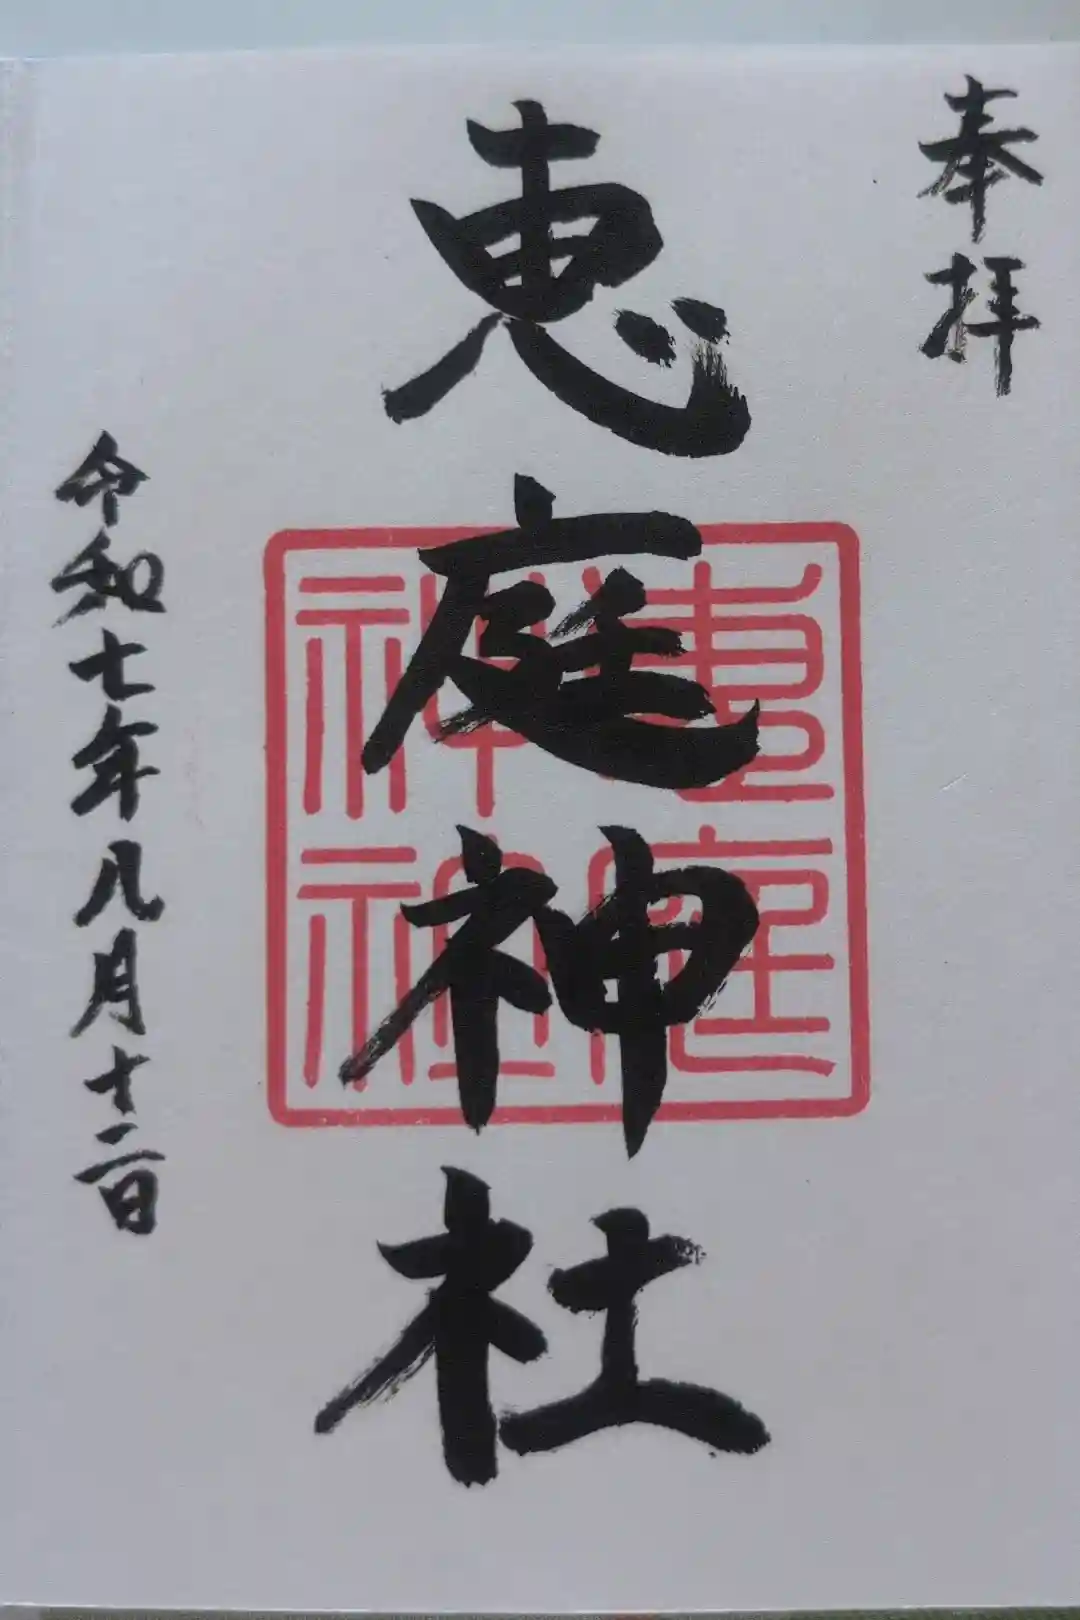 奉拝
恵庭神社
恵庭
神社
令和七年八月十二日